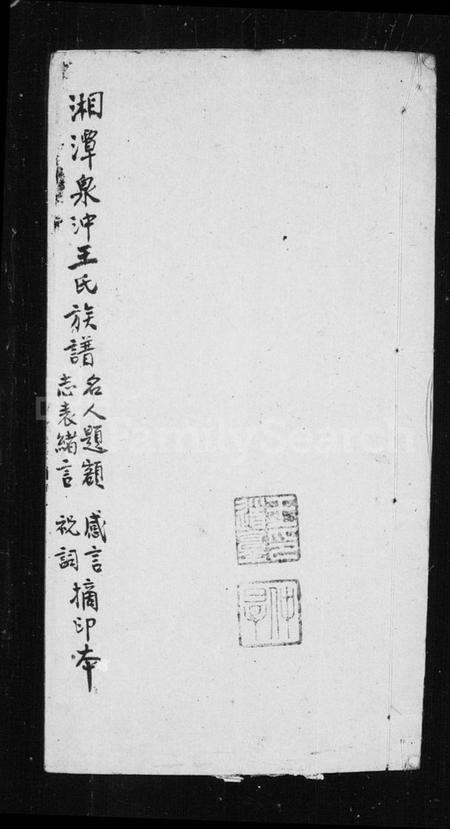 湘潭泉沖王氏族譜
名人題額 感言
志表緒言 祝詞
摘印本
FamilySearch